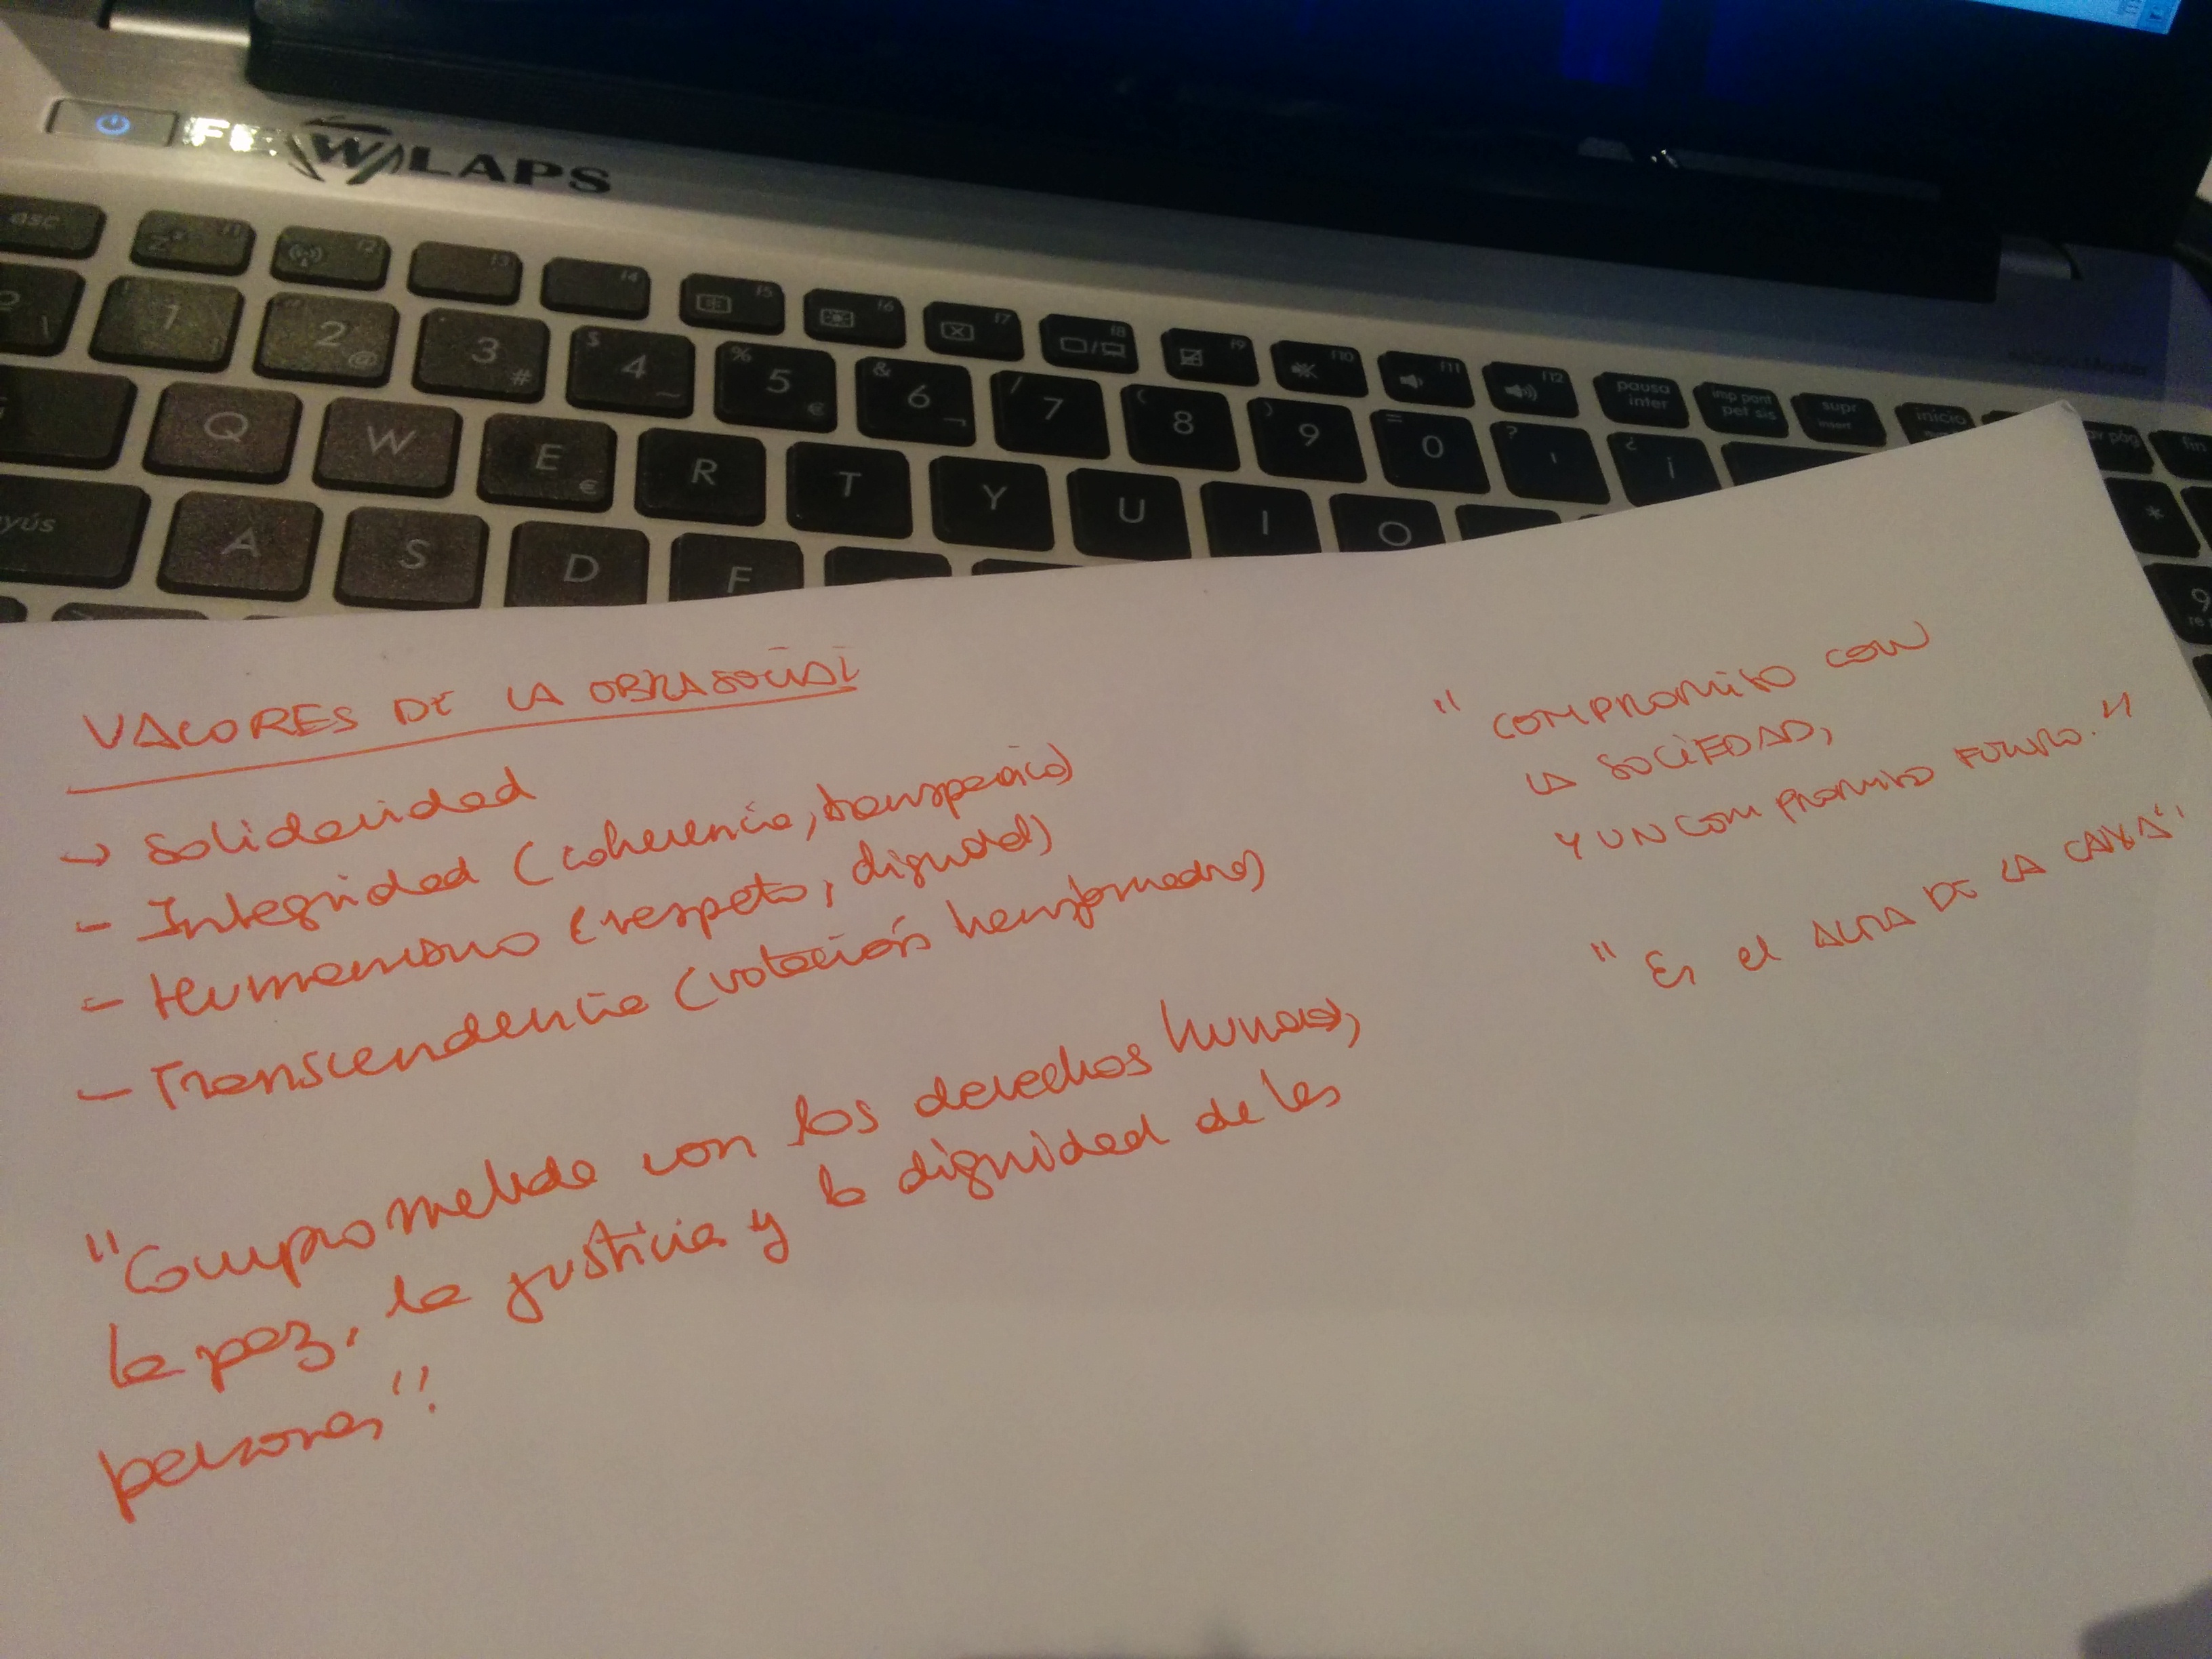 LAPS
esc
f1
f2
f3
f4
f5
f6
f7
f8
f9
f10
f11
f12
pausa inter
imp pant pet sis
supr insert
inicio
av pág
fin
1
2 @
3 #
$ 4 ~
% 5 €
& 6 ¬
/ 7
( 8
) 9
= 0
? '
¿ ¡
Q W E € R T Y U I O
*
A S D F
9
VALORES DE LA OBRA SOCIAL
→ Solidaridad
- Integridad (coherencia, transparencia)
- Humanismo (respeto, dignidad)
- Transcendencia (votación transformadora)
"Comprometida con los derechos humanos,
la paz, la justicia y la dignidad de las
personas"!
"COMPROMISO CON
LA SOCIEDAD,
Y UN COMPROMISO FUTURO."
"Es el ALMA DE LA CAIXA"